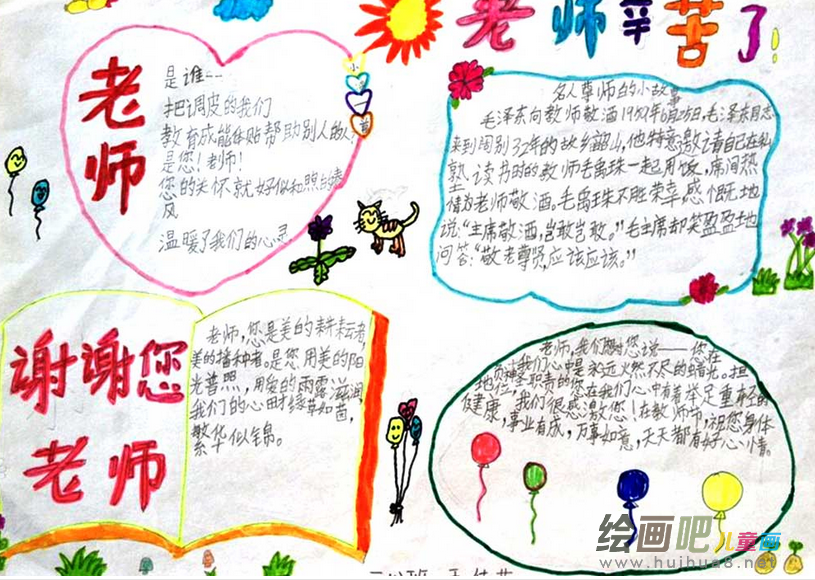 老师辛苦了!
老师
是谁---
把调皮的我们
教育成能体贴帮助别人的人?
是您!老师!
您的关怀就好似和煦的春
风
温暖了我们的心灵
名人尊师的小故事
毛泽东向教师敬酒1959年6月25日,毛泽东同志
来到阔别32年的故乡韶山,他特意邀请自己在私
塾读书时的教师毛禹珠一起用饭,席间热
情为老师敬酒。毛禹珠不胜荣幸,感慨地
说:“主席敬酒,岂敢岂敢。”毛主席却笑盈盈地
回答:“敬老尊贤,应该应该。”
谢谢您
老师
老师,您是美的耕耘者,
美的播种者。是您用美的阳
光普照,用爱的雨露滋润,
我们的心田才绿草如茵,
繁华似锦。
老师,我们想对您说——您在
我们心中是永远火然不尽的蜡光。担
在我们心中有着举足重轻的
地位,我们很感激您!在教师节,祝您身体
健康,事业有成,万事如意,天天都有好心情。
绘画吧儿童画
www.huihua8.net